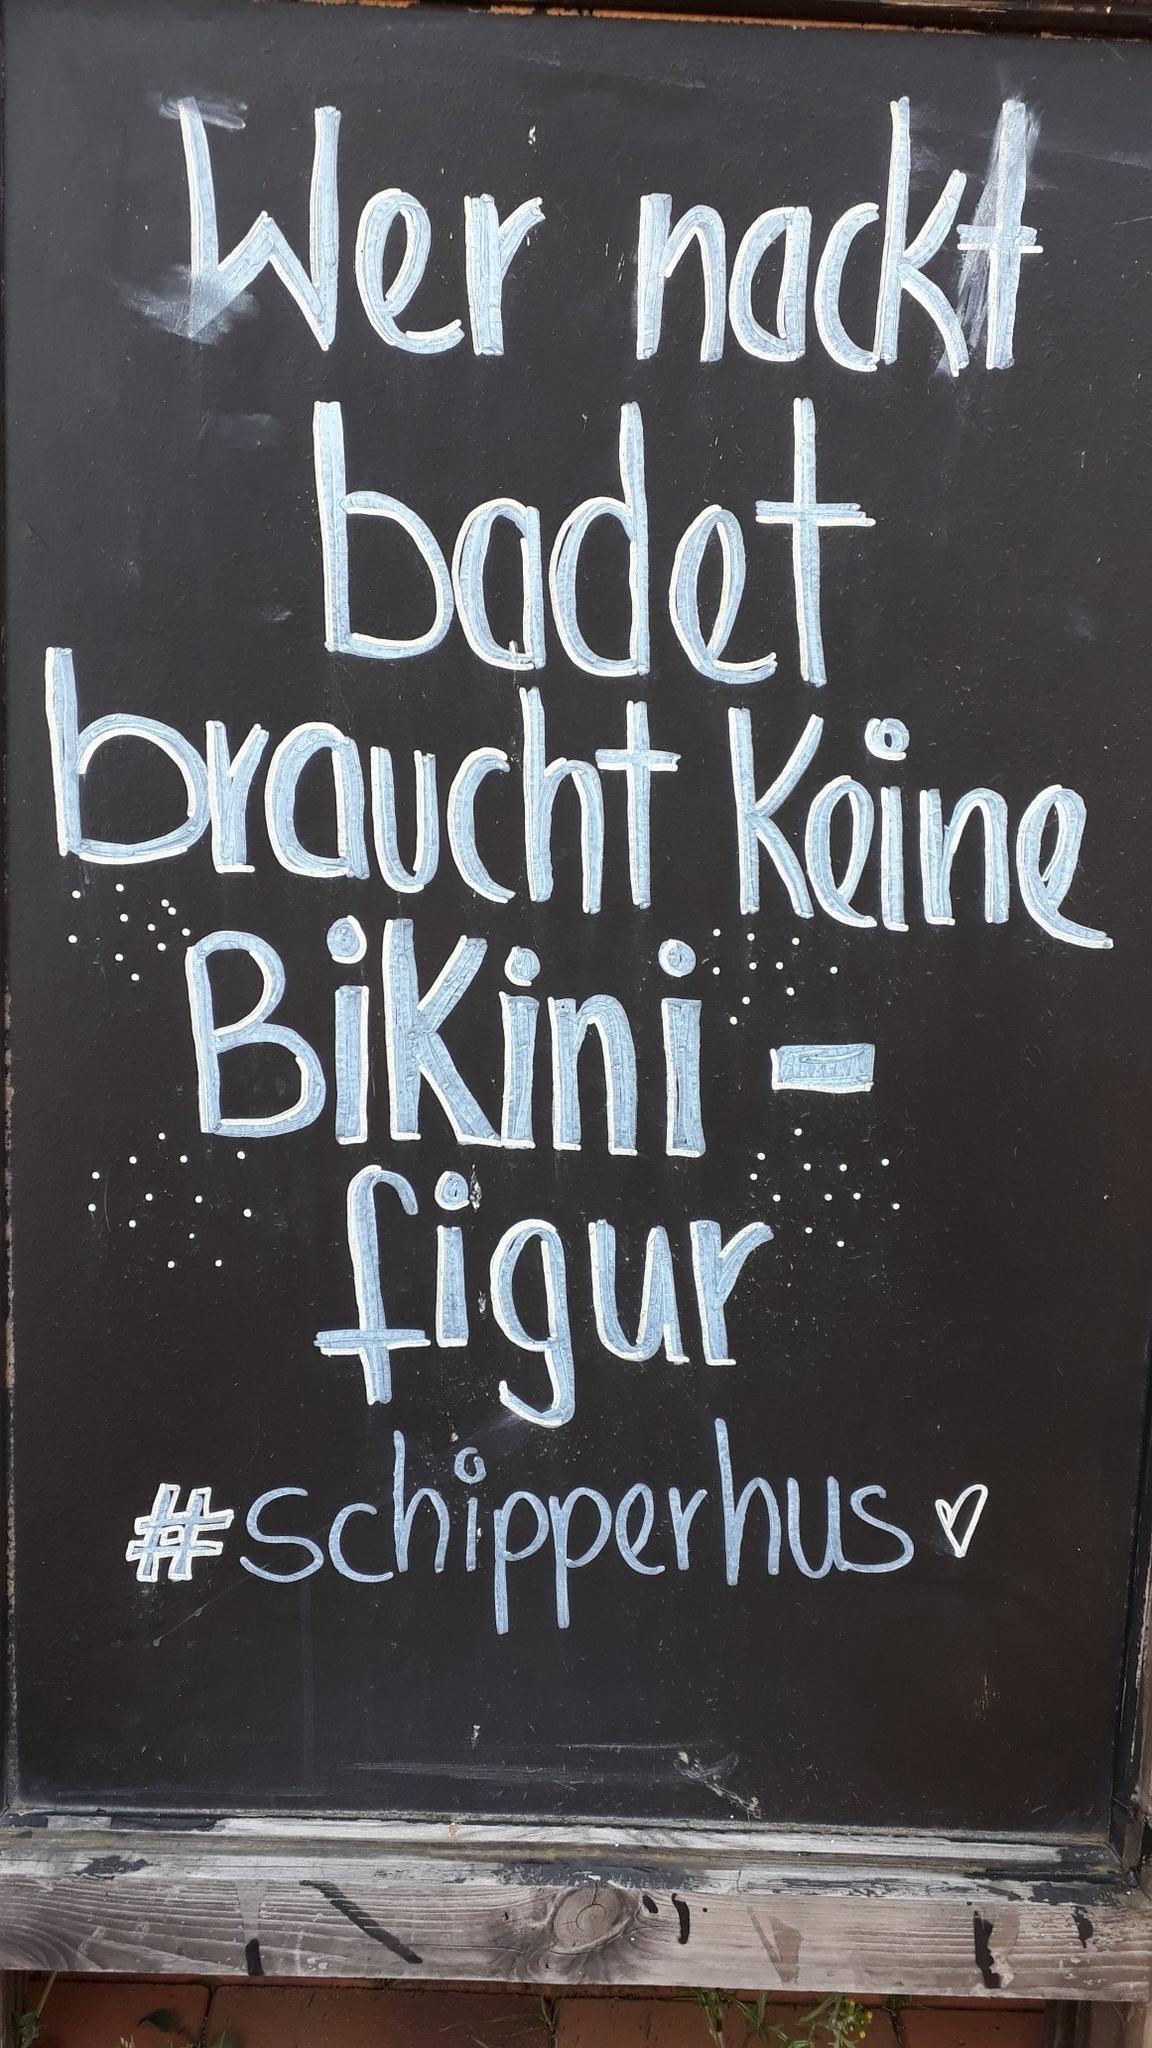 Wer nackt
badet
braucht Keine
BiKini -
figur
#schipperhus♡